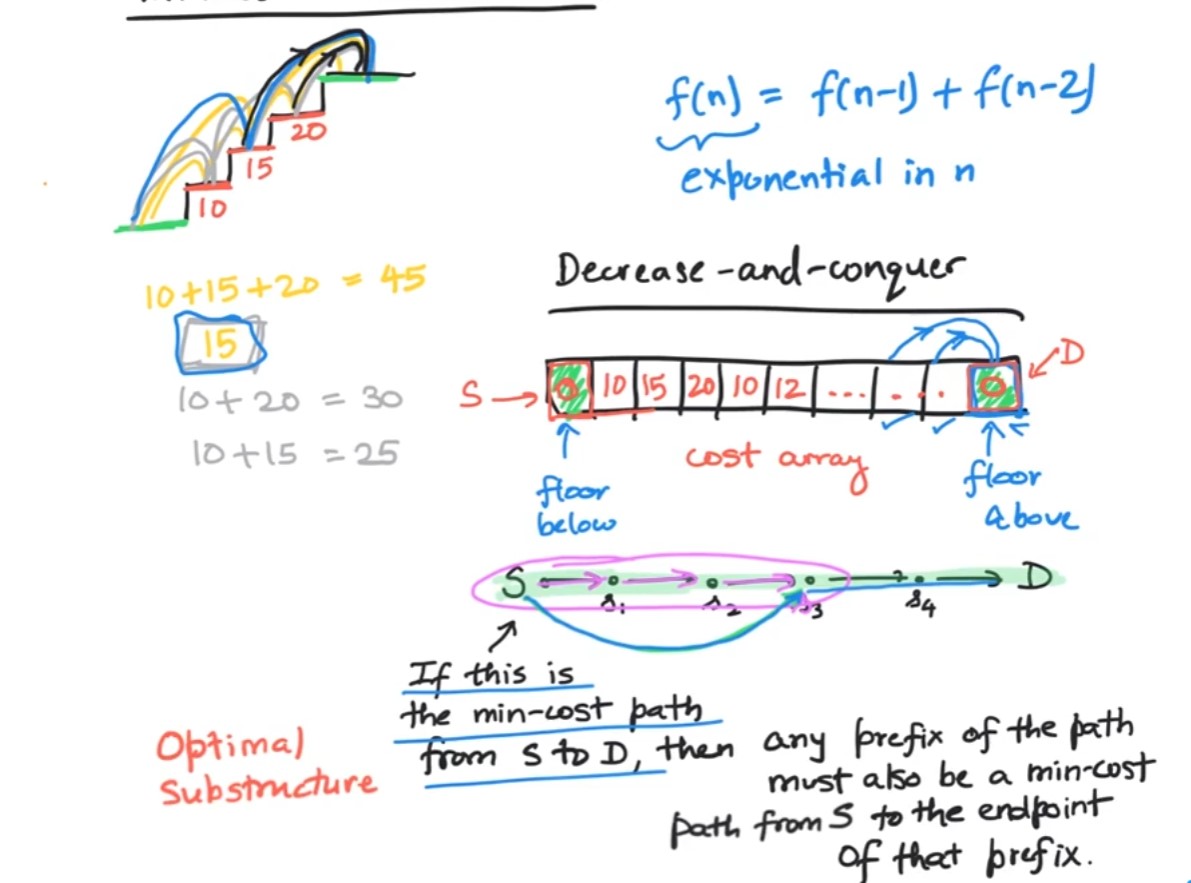 20
15
10
f(n) = f(n-1) + f(n-2)
exponential in n
10+15+20 = 45
15
10+20 = 30
10+15 = 25
Decrease-and-conquer
S → 0 10 15 20 10 12 ... . . . 0 D
cost array
floor below
floor above
S s₁ s₂ s₃ s₄ D
If this is
the min-cost path
from S to D, then any prefix of the path
must also be a min-cost
path from S to the endpoint
of that prefix.
Optimal
Substructure